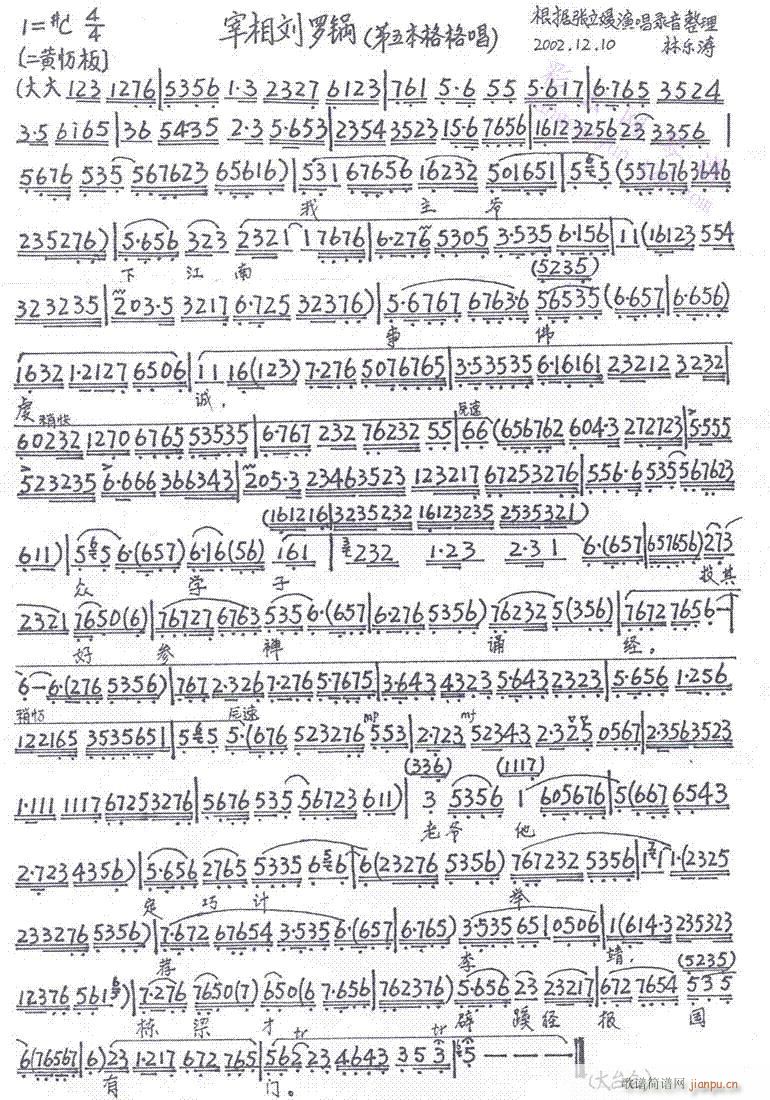 1=#C 4/4 宰相刘罗锅(第五本格格唱) 根据张立媛演唱录音整理
[二黄忉板] 2002.12.10 林乐涛
(大大 123 1276|5356 1·3 2327 6123|761 5·6 55 5·617|6·765 3524
3·5 6765|36 5435 2·3 5·653|2354 3523 15·6 7656|1612325623 3356|
5676 535 567623 65616)|531 67656 16232 501651|565 (5576763646
我 主 爷
235276)|5·656 323 2321 17676|6·276 5305 3·535 6·156|11(16123 554
下 江 南
(5235)
323235|203·5 3217 6·725 32376)|5·6767 6763·6 56535(6·657|6·656)
事 佛
1632 1·2127 6506|11 16(123) 7·276 5076765|3·53535 6·16161 23212 3232|
虔 诚,
稍快 尾速
60232 1270 6765 53535|6·767 232 76232 55|66(656762 604·3 272723|5·555
523235 6·666 366343|205·3 23463523 123217 67253276|556·6 535567623
(161216|3235232 16123235 2535321)
611)|565 6·(657) 6·16(56) 161|232 1·23 2·31 6·(657|657656)273
众 学 子 投其
2321 7650(6)|76727 6763 535 6·(657|6·276 5356) 76232 5(356)|7672 7656-|
好 参 禅 诵 经。
6-6·(276 5356)|767 2·326 7·276 5·7675|3·643 4323 5·643 2323|5·656 1·256
稍忉 尾速 mp mf
122165 3535651|565 5·(676 523276 553|2·723 52343 2·325 0567|2·3563523
(336) (1117)
1·111 1117 67253276|5676 535 56723 611)|3 5356 1 605676|5(667 6543
老爷 他
2·723 4356)|5·656 2765 5335 656|6(23276 5356) 767232 5356|11·(2325
定 巧 计 举
233276 5356)|7·672 67654 3·535 6·(657|6·765) 3·535 651 0506|1(614·3 235323
荐 李 靖,
(5235)
12376 561)|7·276 7650(7) 650(6 7·656|762376) 5·656 23 23217|672 7654 535
栋 梁 才 辟 蹊 径 报 国
6(76567|6)23 1·217 672 765|562 23 4643 353|5 - - -||
有 门。 (大台仓)
歌谱简谱网
jianpu.cn